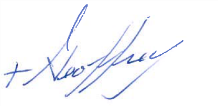 + Geoffrey